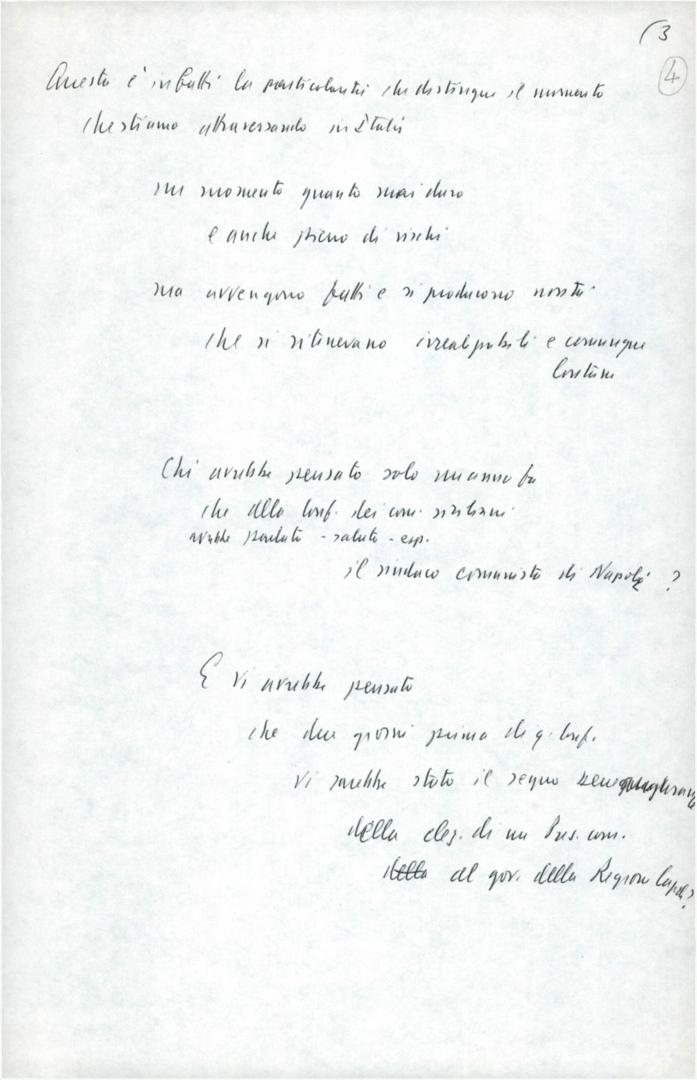 (3
4
Questa è infatti la particolarità che distingue il momento
che stiamo attraversando in Italia
un momento quanto mai duro
e anche pieno di rischi
ma avvengono fatti e si producono novità
che si ritenevano irrealizzabili e comunque
lontane
Chi avrebbe pensato solo un anno fa
che alla Conf. dei com. siciliani
avrebbe parlato - saluto - esp.
il sindaco comunista di Napoli ?
E vi avrebbe pensato
che due giorni prima di q. Conf.
vi sarebbe stato il segno
della elez. di un Pres. com.
della al gov. della Regione